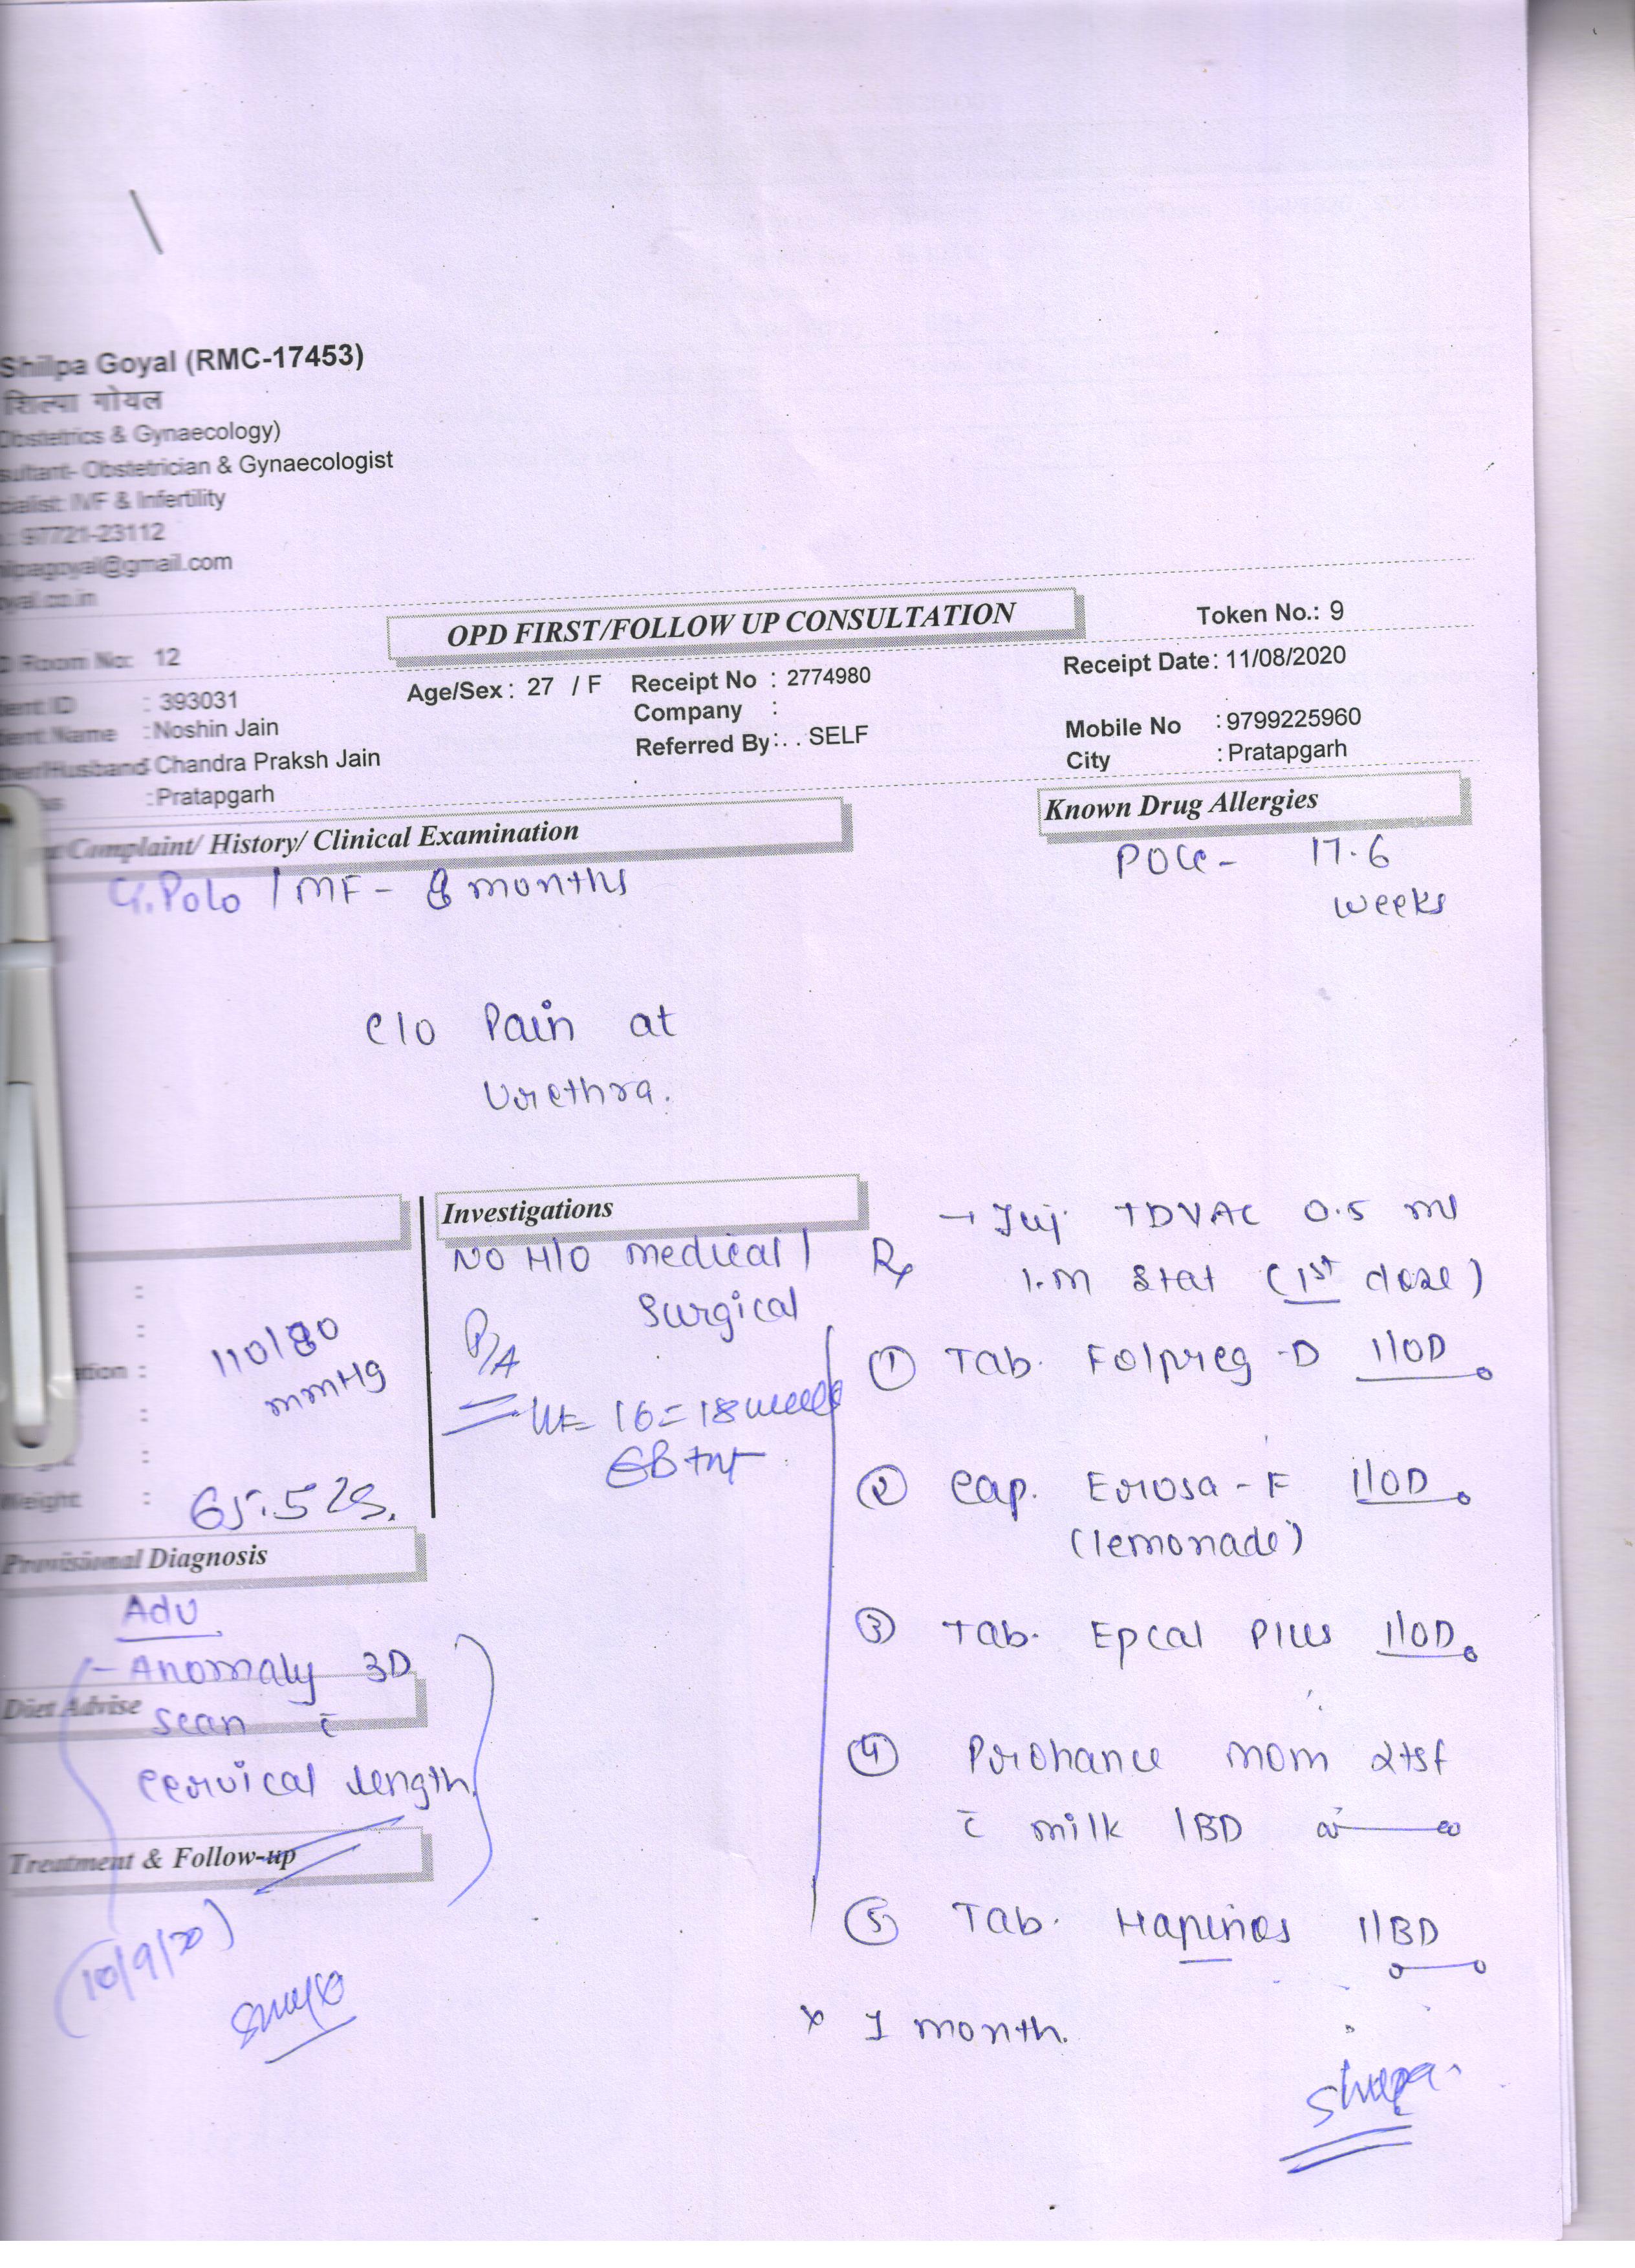 Shilpa Goyal (RMC-17453)
शिल्पा गोयल
Obstetrics & Gynaecology)
sultant- Obstetrician & Gynaecologist
cialist: IVF & Infertility
: 97721-23112
ilpagoyal@gmail.com
oyal.co.in
OPD FIRST/FOLLOW UP CONSULTATION
Token No.: 9
Room No: 12
Receipt Date: 11/08/2020
ient ID : 393031
Age/Sex : 27 / F
Receipt No : 2774980
ient Name : Noshin Jain
Company :
Mobile No : 9799225960
her/Husband : Chandra Praksh Jain
Referred By : . . SELF
City : Pratapgarh
ss : Pratapgarh
Complaint/ History/ Clinical Examination
Known Drug Allergies
G1P0L0 / MF - 8 months
POG - 17.6
weeks
c/o Pain at
Urethra.
Investigations
NO H/O medical /
surgical
P/A
16 = 18 weeks
:
:
ation :
110/80
mmHg
:
:
Weight :
65.5
Provisional Diagnosis
Adv
- Anomaly 3D
Diet Advise
scan c̄
cervical length
Treatment & Follow-up
(10/9/20)
→ Inj. TDVAC 0.5 ml
Rx I.M Stat (1st dose)
① Tab. Folpreg-D 1/OD
② Cap. Erosa-F 1/OD
(lemonade)
③ Tab. Epcal Plus 1/OD
④ Prohance mom 2tsf
c̄ milk 1BD
⑤ Tab. 1/BD
x 1 month.
Shilpa